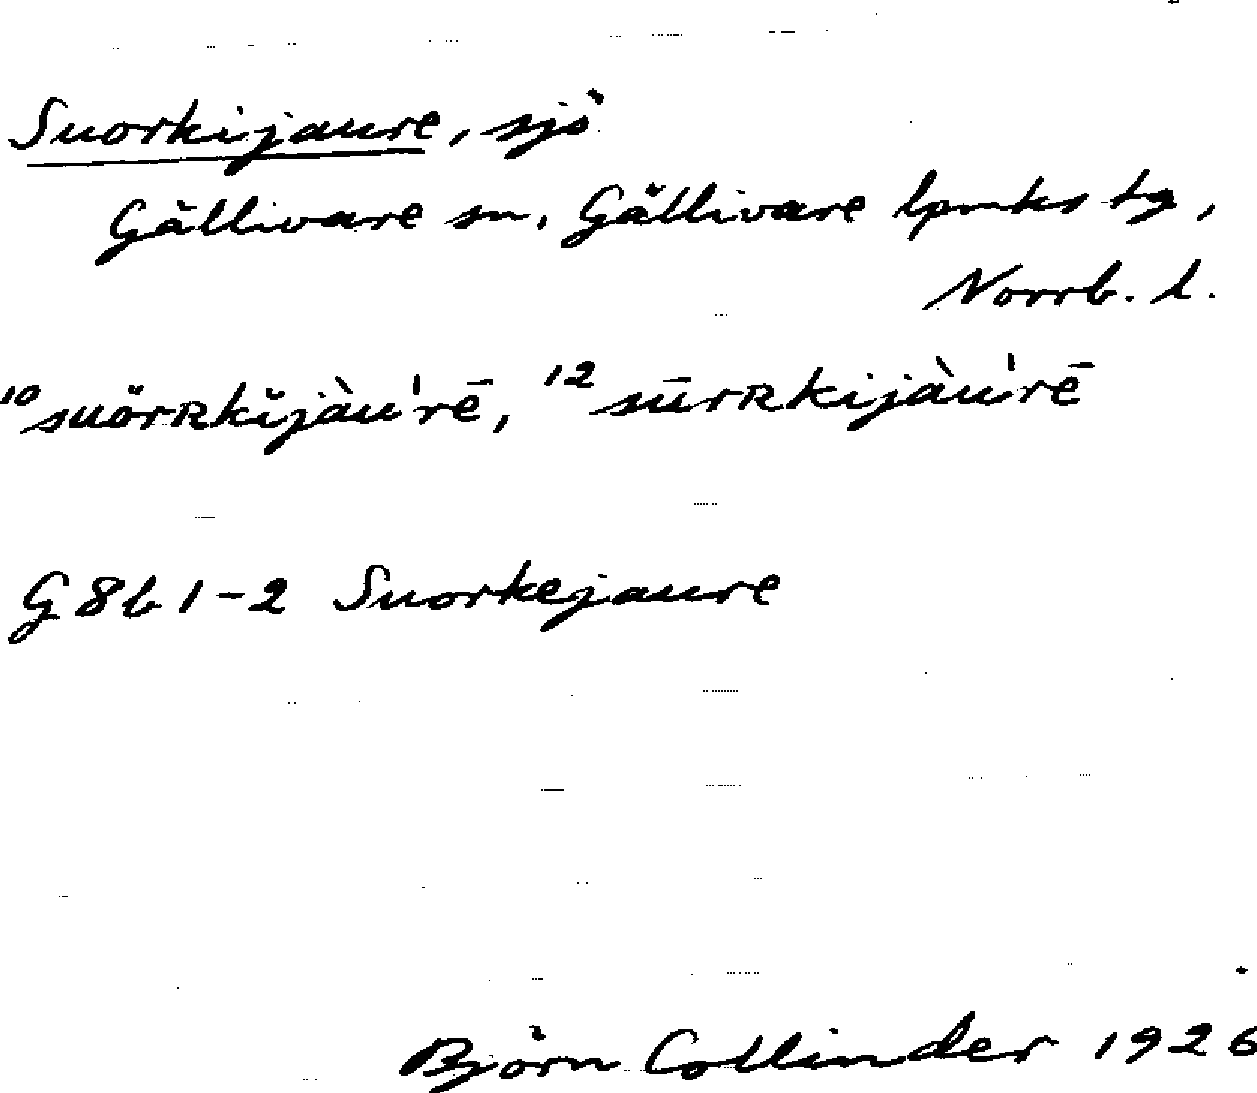 Suorkijaure, sjö
Gällivare sn, Gällivare lpmks tg,
Norrb. l.
¹⁰suörʀkĭjàu'rē, ¹²sūrʀkijàu'rē
G 8b 1-2 Suorkejaure
Björn Collinder 1926